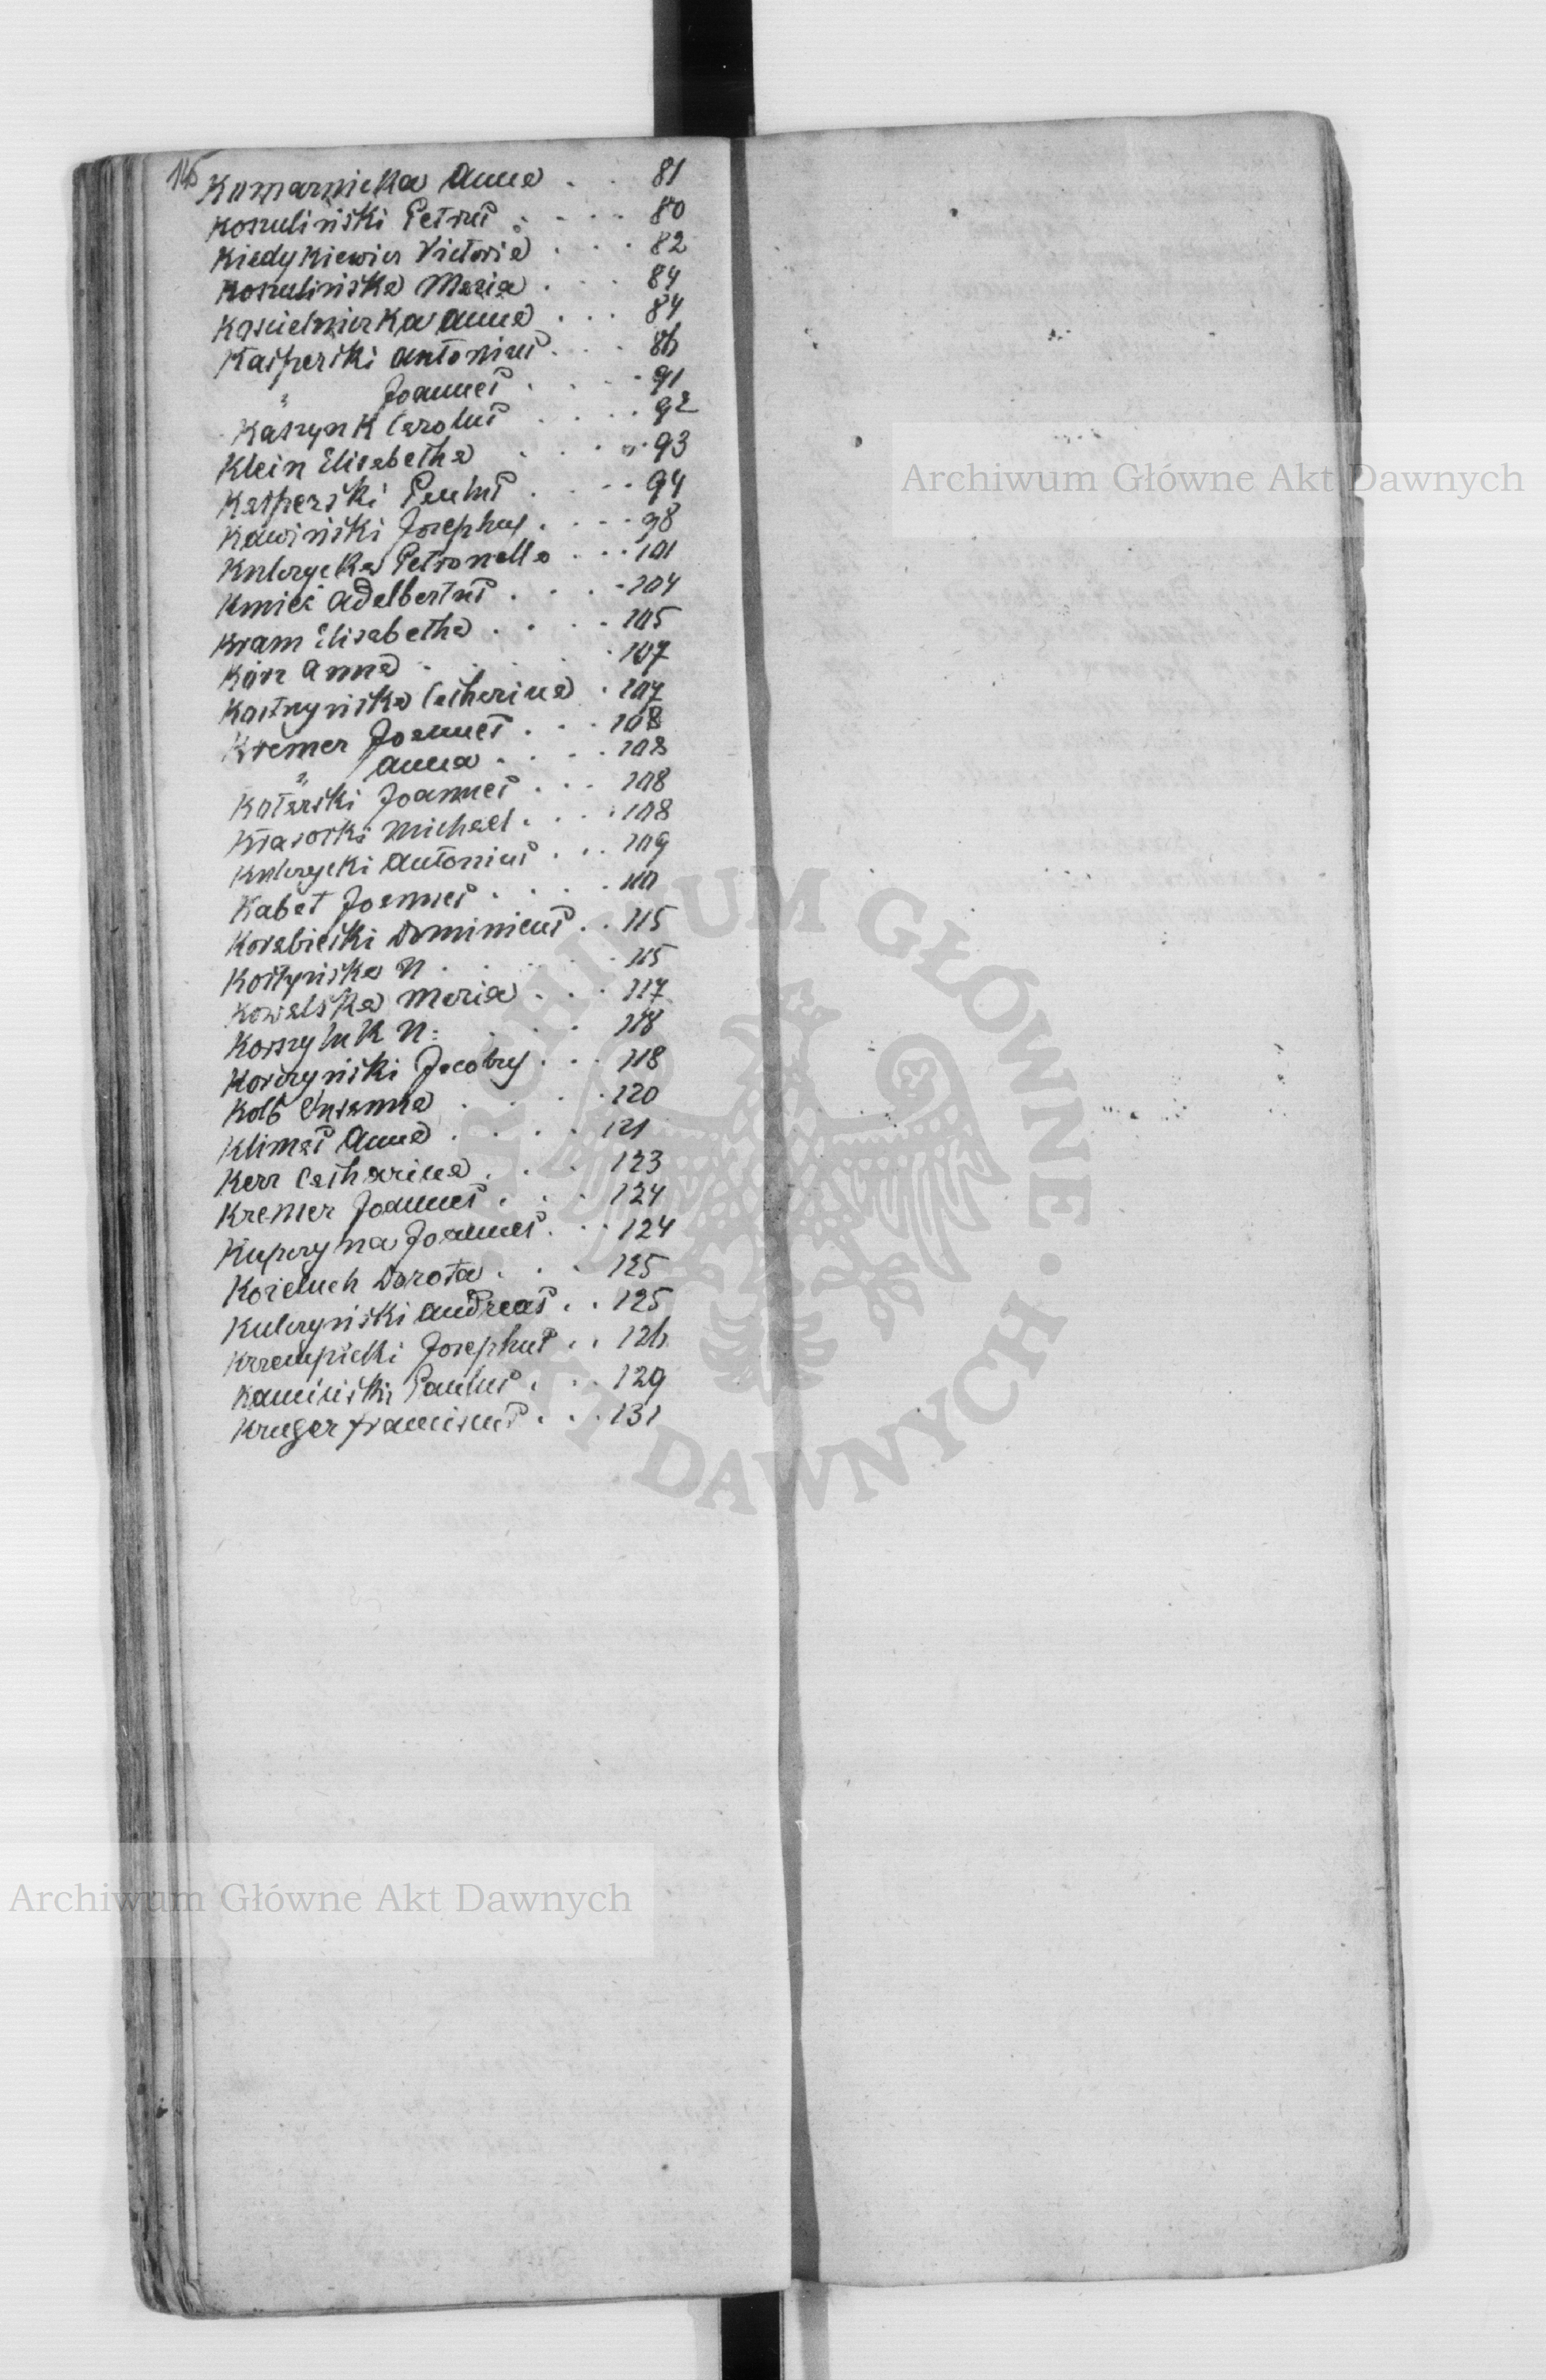 145
Komarnicka Anna . . 81
Koszuliński Petrus . . . . 80
Kiedykiewicz Victoria . . . 82
Koszulińska Maria . . . 84
Kościelnizka Anna . . . 84
Kasperski Antonius . . . 86
" Joannes . . . . 91
Kaszynk Carolus . . . . 92
Klein Elisabetha . . . . 93
Kasperski Paulus . . . . 94
Kawiński Josephus . . . . 98
Kulczycka Petronella . . . 101
Kmieć Adelbertus . . . . 104
Kram Elisabetha . . . . 105
Korz Anna . . . . 107
Kostrzyńska Catharina . 107
Kremer Joannes . . . 108
" Anna . . . . 108
Kotarski Joannes . . . 108
Krasoski Michael . . . . 108
Kulczycki Antonius . . . 109
Kabat Joannes . . . . 110
Korabieski Dominicus . . 115
Kostyńska N . . . . . 115
Kowalska Maria . . . 117
Korszyluk N: . . . 118
Korczyński Jacobus . . . 118
Kolb Susanna . . . . 120
Klimas Anna . . . . 121
Kerr Catharina . . . 123
Kremer Joannes . . . 124
Kupczyna Joannes . . . 124
Kozeluch Dorota . . . 125
Kulczyński Andreas . . 125
Krzempicki Josephus . . 126
Kamiński Paulus . . . 129
Kruger Franciscus . . . 131
Archiwum Główne Akt Dawnych
ARCHIWUM GŁÓWNE AKT DAWNYCH
Archiwum Główne Akt Dawnych